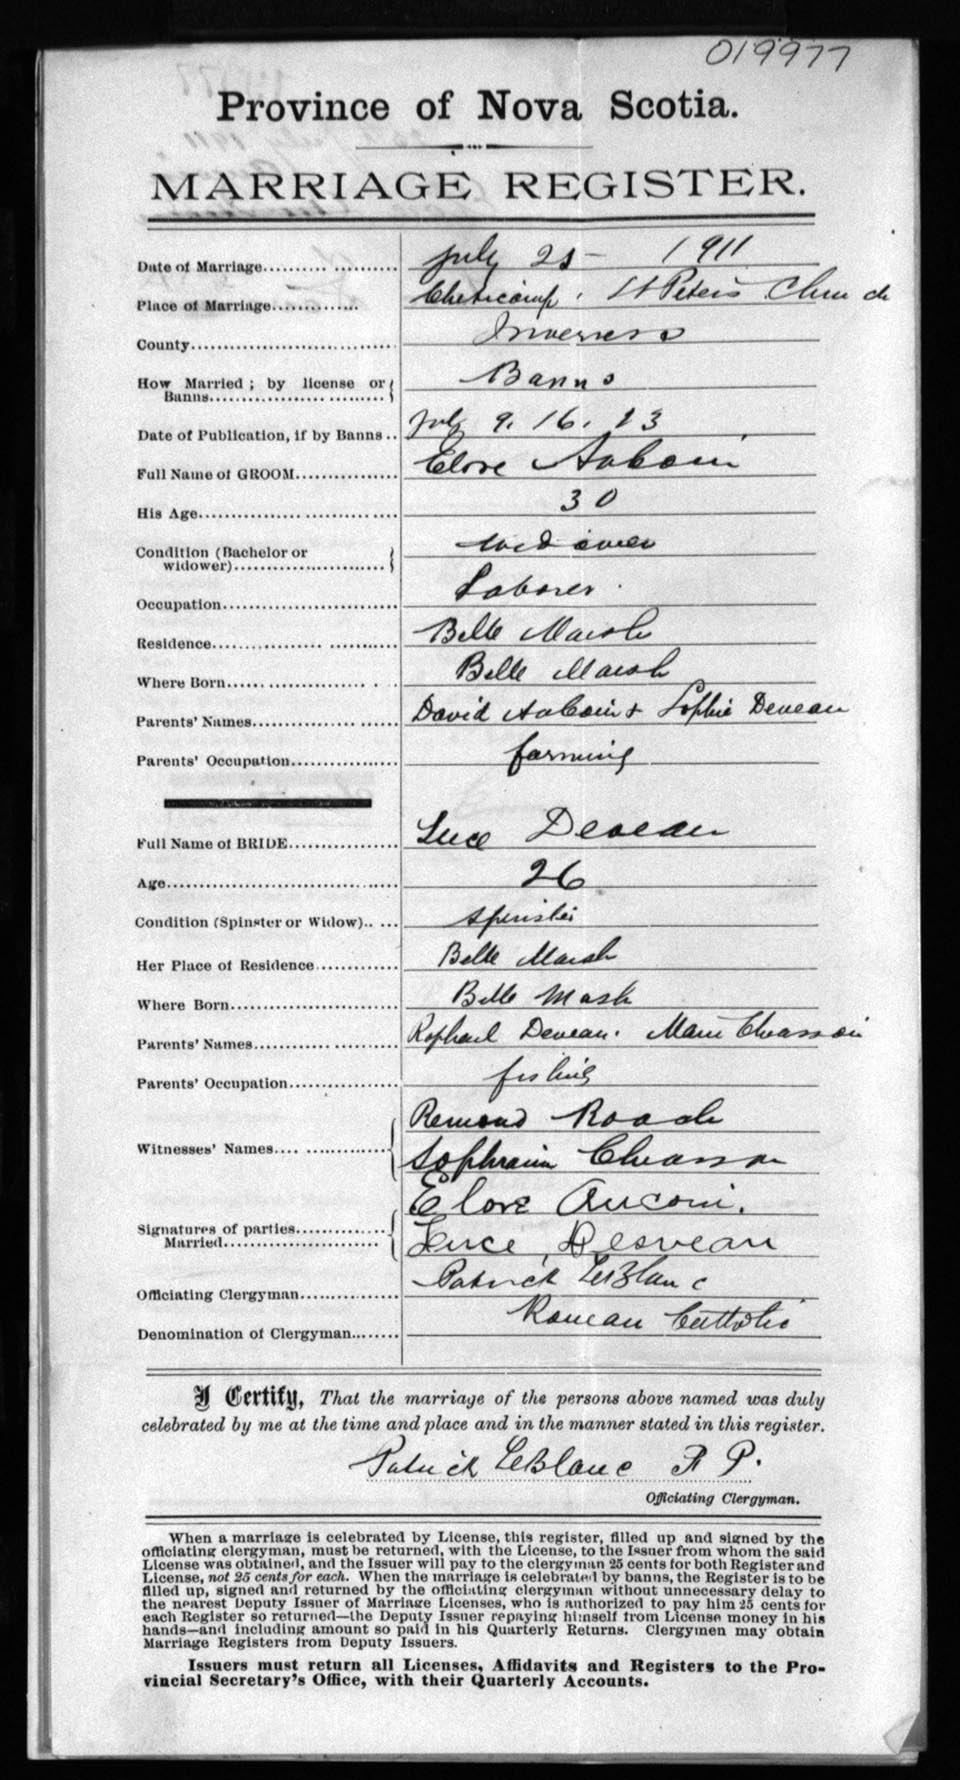 019977
Province of Nova Scotia.
MARRIAGE REGISTER.
Date of Marriage.......... ............ July 25 - 1911
Place of Marriage.............. Cheticamp, St Peters Church
County................................ Inverness
How Married; by license or Banns.................. ......... Banns
Date of Publication, if by Banns .. July 9. 16. 23
Full Name of GROOM............... Elore Aucoin
His Age................... ............. 30
Condition (Bachelor or widower)....................... widower
Occupation........................... Laborer.
Residence................ ........... Belle Marsh
Where Born...................... . .. Belle Marsh
Parents' Names............. ......... David Aucoin & Sophie Deveau
Parents' Occupation................ farming
Full Name of BRIDE................. Luce Deveau
Age................................... 26
Condition (Spinster or Widow).. ... spinster
Her Place of Residence............. Belle Marsh
Where Born......................... Belle Mash
Parents' Names............ ......... Raphael Deveau. Marie Chiasson
Parents' Occupation................ fishing
Witnesses' Names.... ............ Remond Roach
Chiasson
Signatures of parties.............. Elore Aucoin.
Married........................ Luce Desveau
Officiating Clergyman.............. Patrick LeBlanc
Denomination of Clergyman........ Roman Catholic
I Certify, That the marriage of the persons above named was duly
celebrated by me at the time and place and in the manner stated in this register.
Patrick LeBlanc P.P.
Officiating Clergyman.
When a marriage is celebrated by License, this register, filled up and signed by the
officiating clergyman, must be returned, with the License, to the Issuer from whom the said
License was obtained, and the Issuer will pay to the clergyman 25 cents for both Register and
License, not 25 cents for each. When the marriage is celebrated by banns, the Register is to be
filled up, signed and returned by the officiating clergyman without unnecessary delay to
the nearest Deputy Issuer of Marriage Licenses, who is authorized to pay him 25 cents for
each Register so returned—the Deputy Issuer repaying himself from License money in his
hands—and including amount so paid in his Quarterly Returns. Clergymen may obtain
Marriage Registers from Deputy Issuers.
Issuers must return all Licenses, Affidavits and Registers to the Pro-
vincial Secretary's Office, with their Quarterly Accounts.